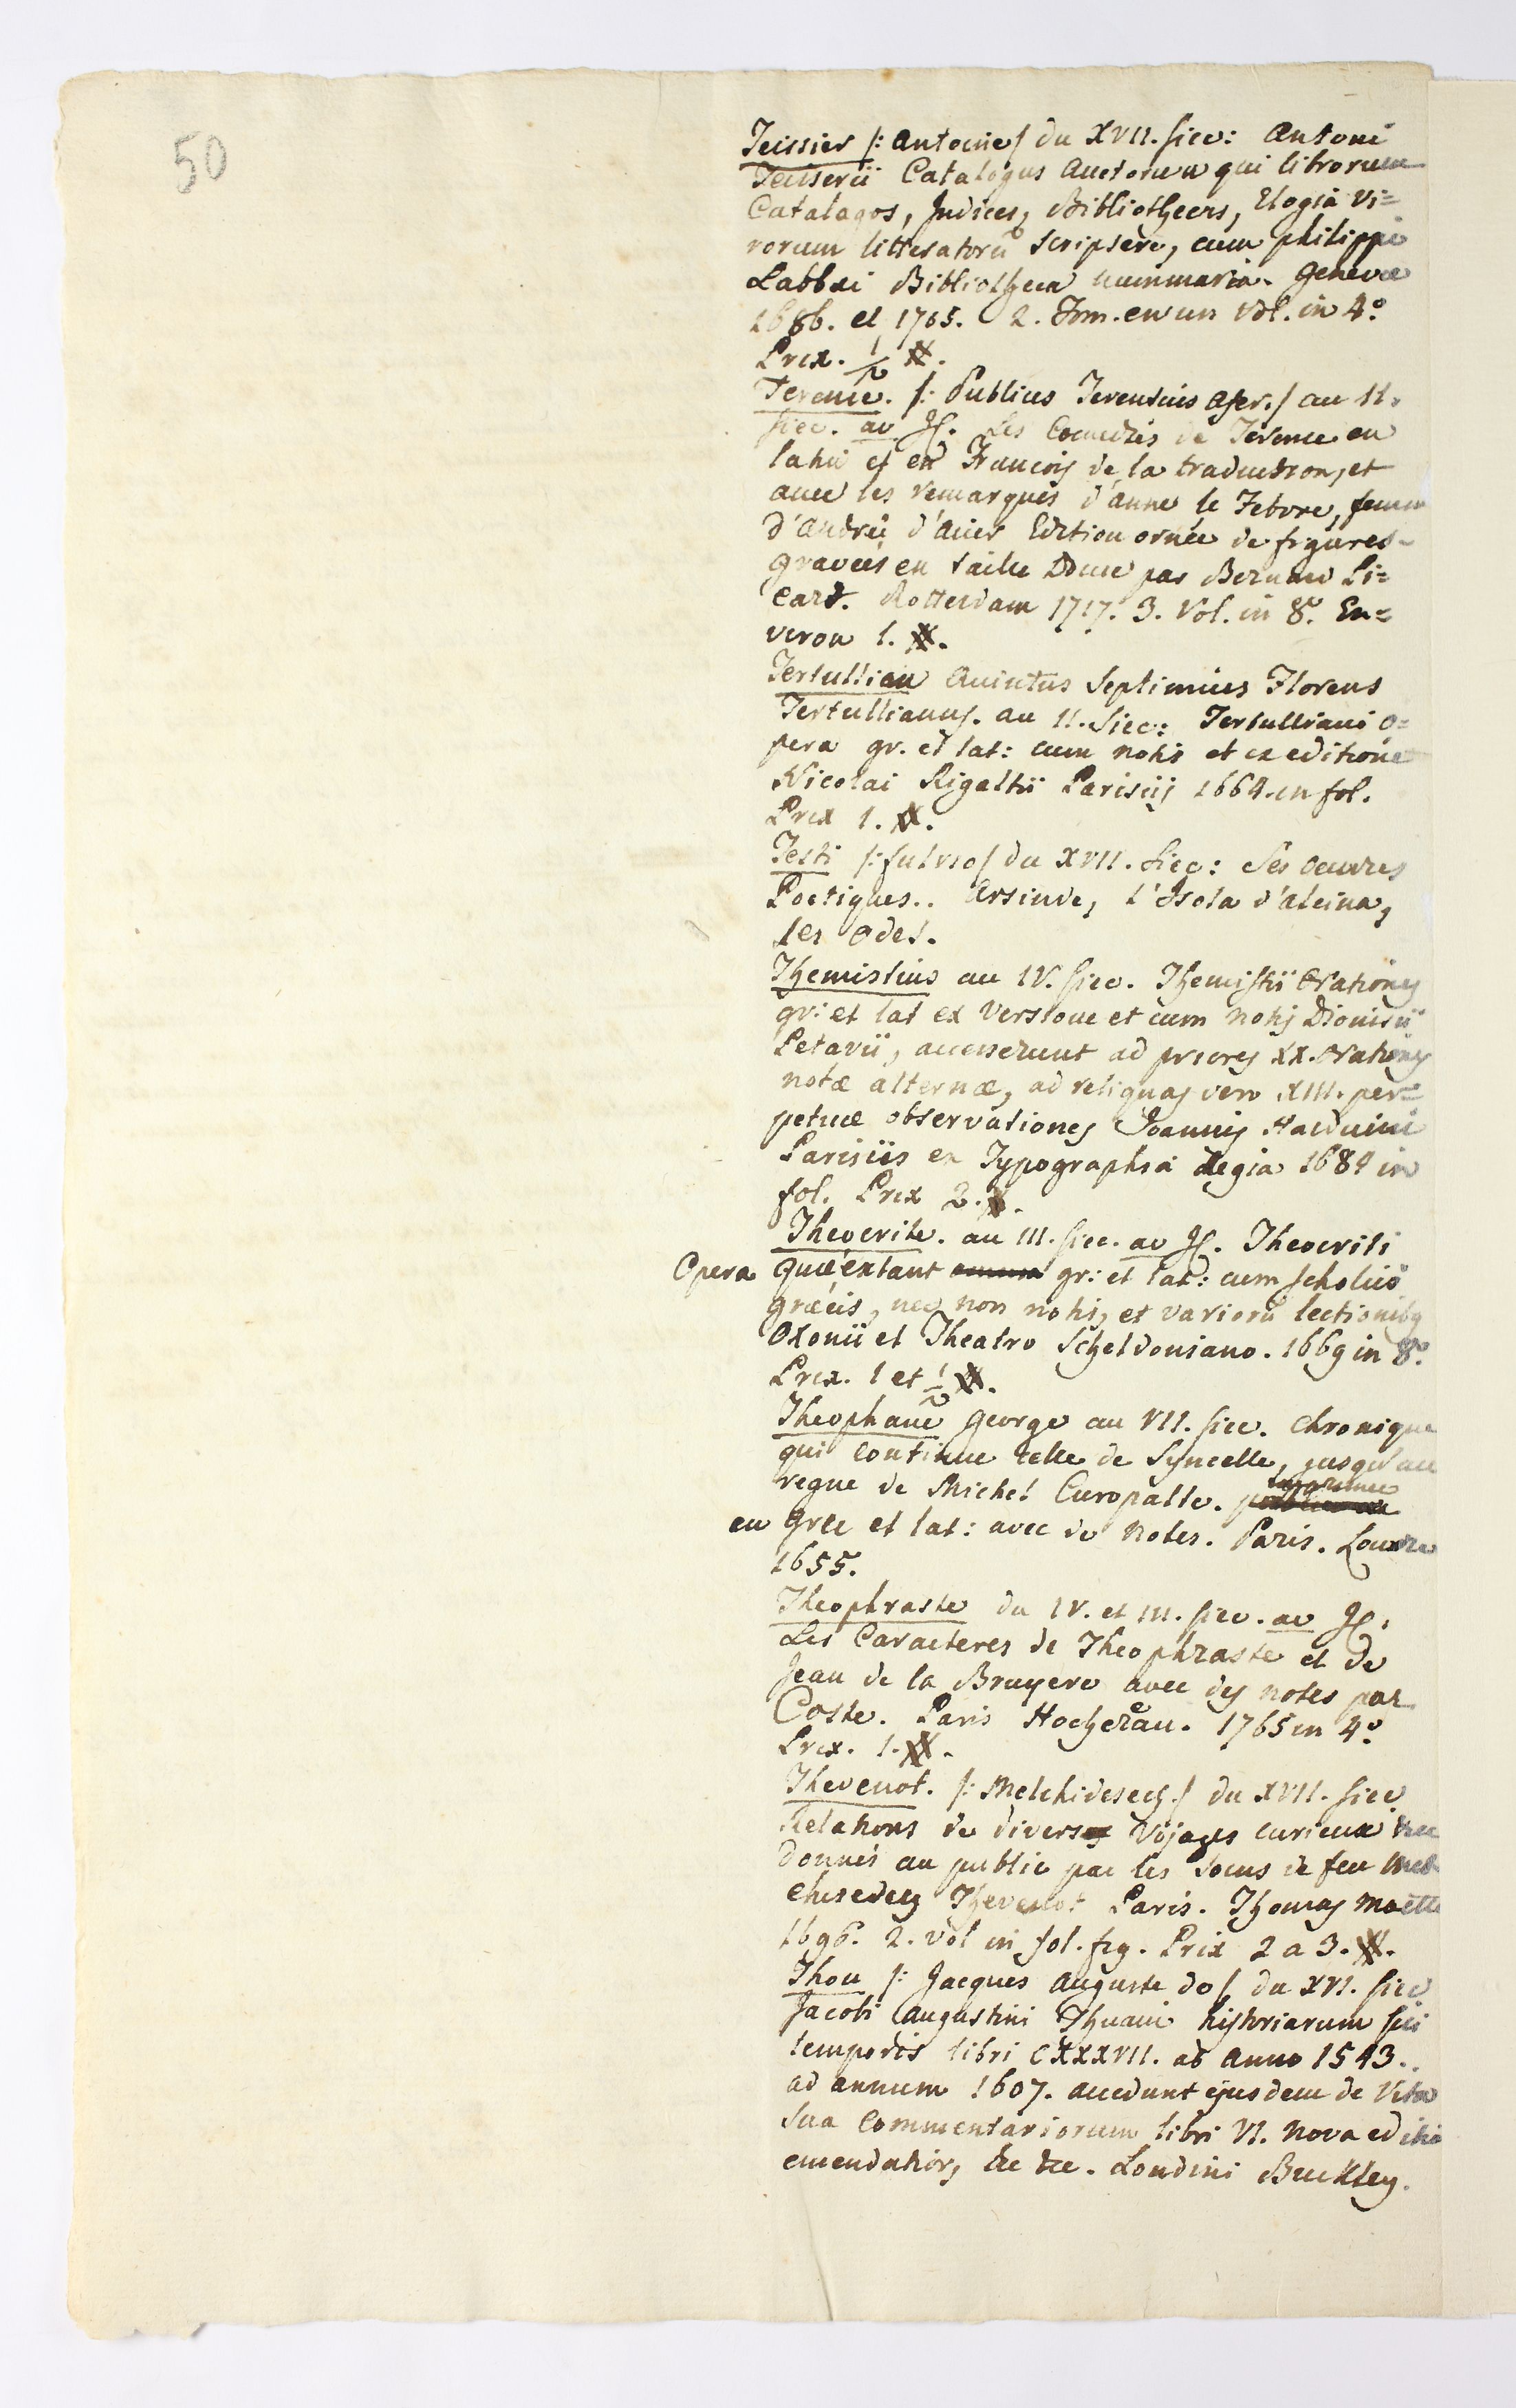 50
Teissier /: Antoine / du XVII. siec: Antoni
Teisserii Catalogus Auctorum qui librorum
Catalagos, Indices, Bibliothecas, Elogia Vi=
rorum litteratorū scripsere, cum philippi
Labbæi Bibliotheca nummaria. Genevæ
1686. et 1705. 2. Tom. en un Vol. in 4º
Prix. 1/2 #.
Terence. /: Publius Terentius Afer. / au II.
siec. av JC. Les Comedies de Terence en
latin et en Francois de la traduction, et
avec les remarques d'Anne le Febvre, femm
d'André d'Acier Edition ornée de figures
gravées en taille Douce par Bernard Pi=
card. Rotterdam 1717. 3. Vol. in 8º. En=
viron 1. #.
Tertullien Quintus Septimius Florens
Tertullianus. au II. Siec: Tertulliani O=
pera gr. et lat: cum notis et ex editione
Nicolai Rigaltii Parisiis 1664. in fol.
Prix 1. #.
Testi /: fulvio / du XVII. Siec: Ses oeuvres
Poetiques.. Arsinde, L'Isola d'Alcina,
les Odes.
Themistius au IV. siec. Themistii Orationes
gr: et lat ex Versione et cum notis Dionisii
Petavii, accesserunt ad priores XX. Orationes
notæ alternæ, ad reliquas vero XIII. per=
petuæ observationes Joannis Harduini
Parisiis ex Typographia Regia 1684 in
fol. Prix 2. #.
Theocrite. au III. siec. av JC. Theocriti
Opera quæ extant gr: et lat: cum scholiis
græcis, nec non notis, et variorū lectionibg
Oxonii et Theatro Scheldoniano. 1669 in 8º.
Prix. 1 et 1/2 #.
Theophane George au VII. siec. Chronique
qui continue celle de Syncelle, jusqu'au
regne de Michel Curopalte. imprimee
en grec et lat: avec de Notes. Paris. Louvre
1655.
Theophraste du IV. et III. siec. av JC.
Les Caracteres de Theophraste et de
Jean de la Bruyere avec des notes par
Coste. Paris Hochereau. 1765 in 4º
Prix. 1. #.
Thevenot. /: Melchidesech / du XVII. siec
Relations de divers Voyages curieux &ce
donnés au public par les soins de feu Mel
chesedech Thevenot Paris. Thomas Moette
1696. 2. vol in fol. fig. Prix 2 a 3. #.
Thou /: Jacques Auguste de / du XVI. siec
Jacobi Augustini Thuani historiarum sui
temporis libri CXXXVII. ab Anno 1543..
ad annum 1607. accedunt ejusdem de Vita
sua Commentariorum libri VI. Nova editio
emendatior, &c &c. Londini Buckley.